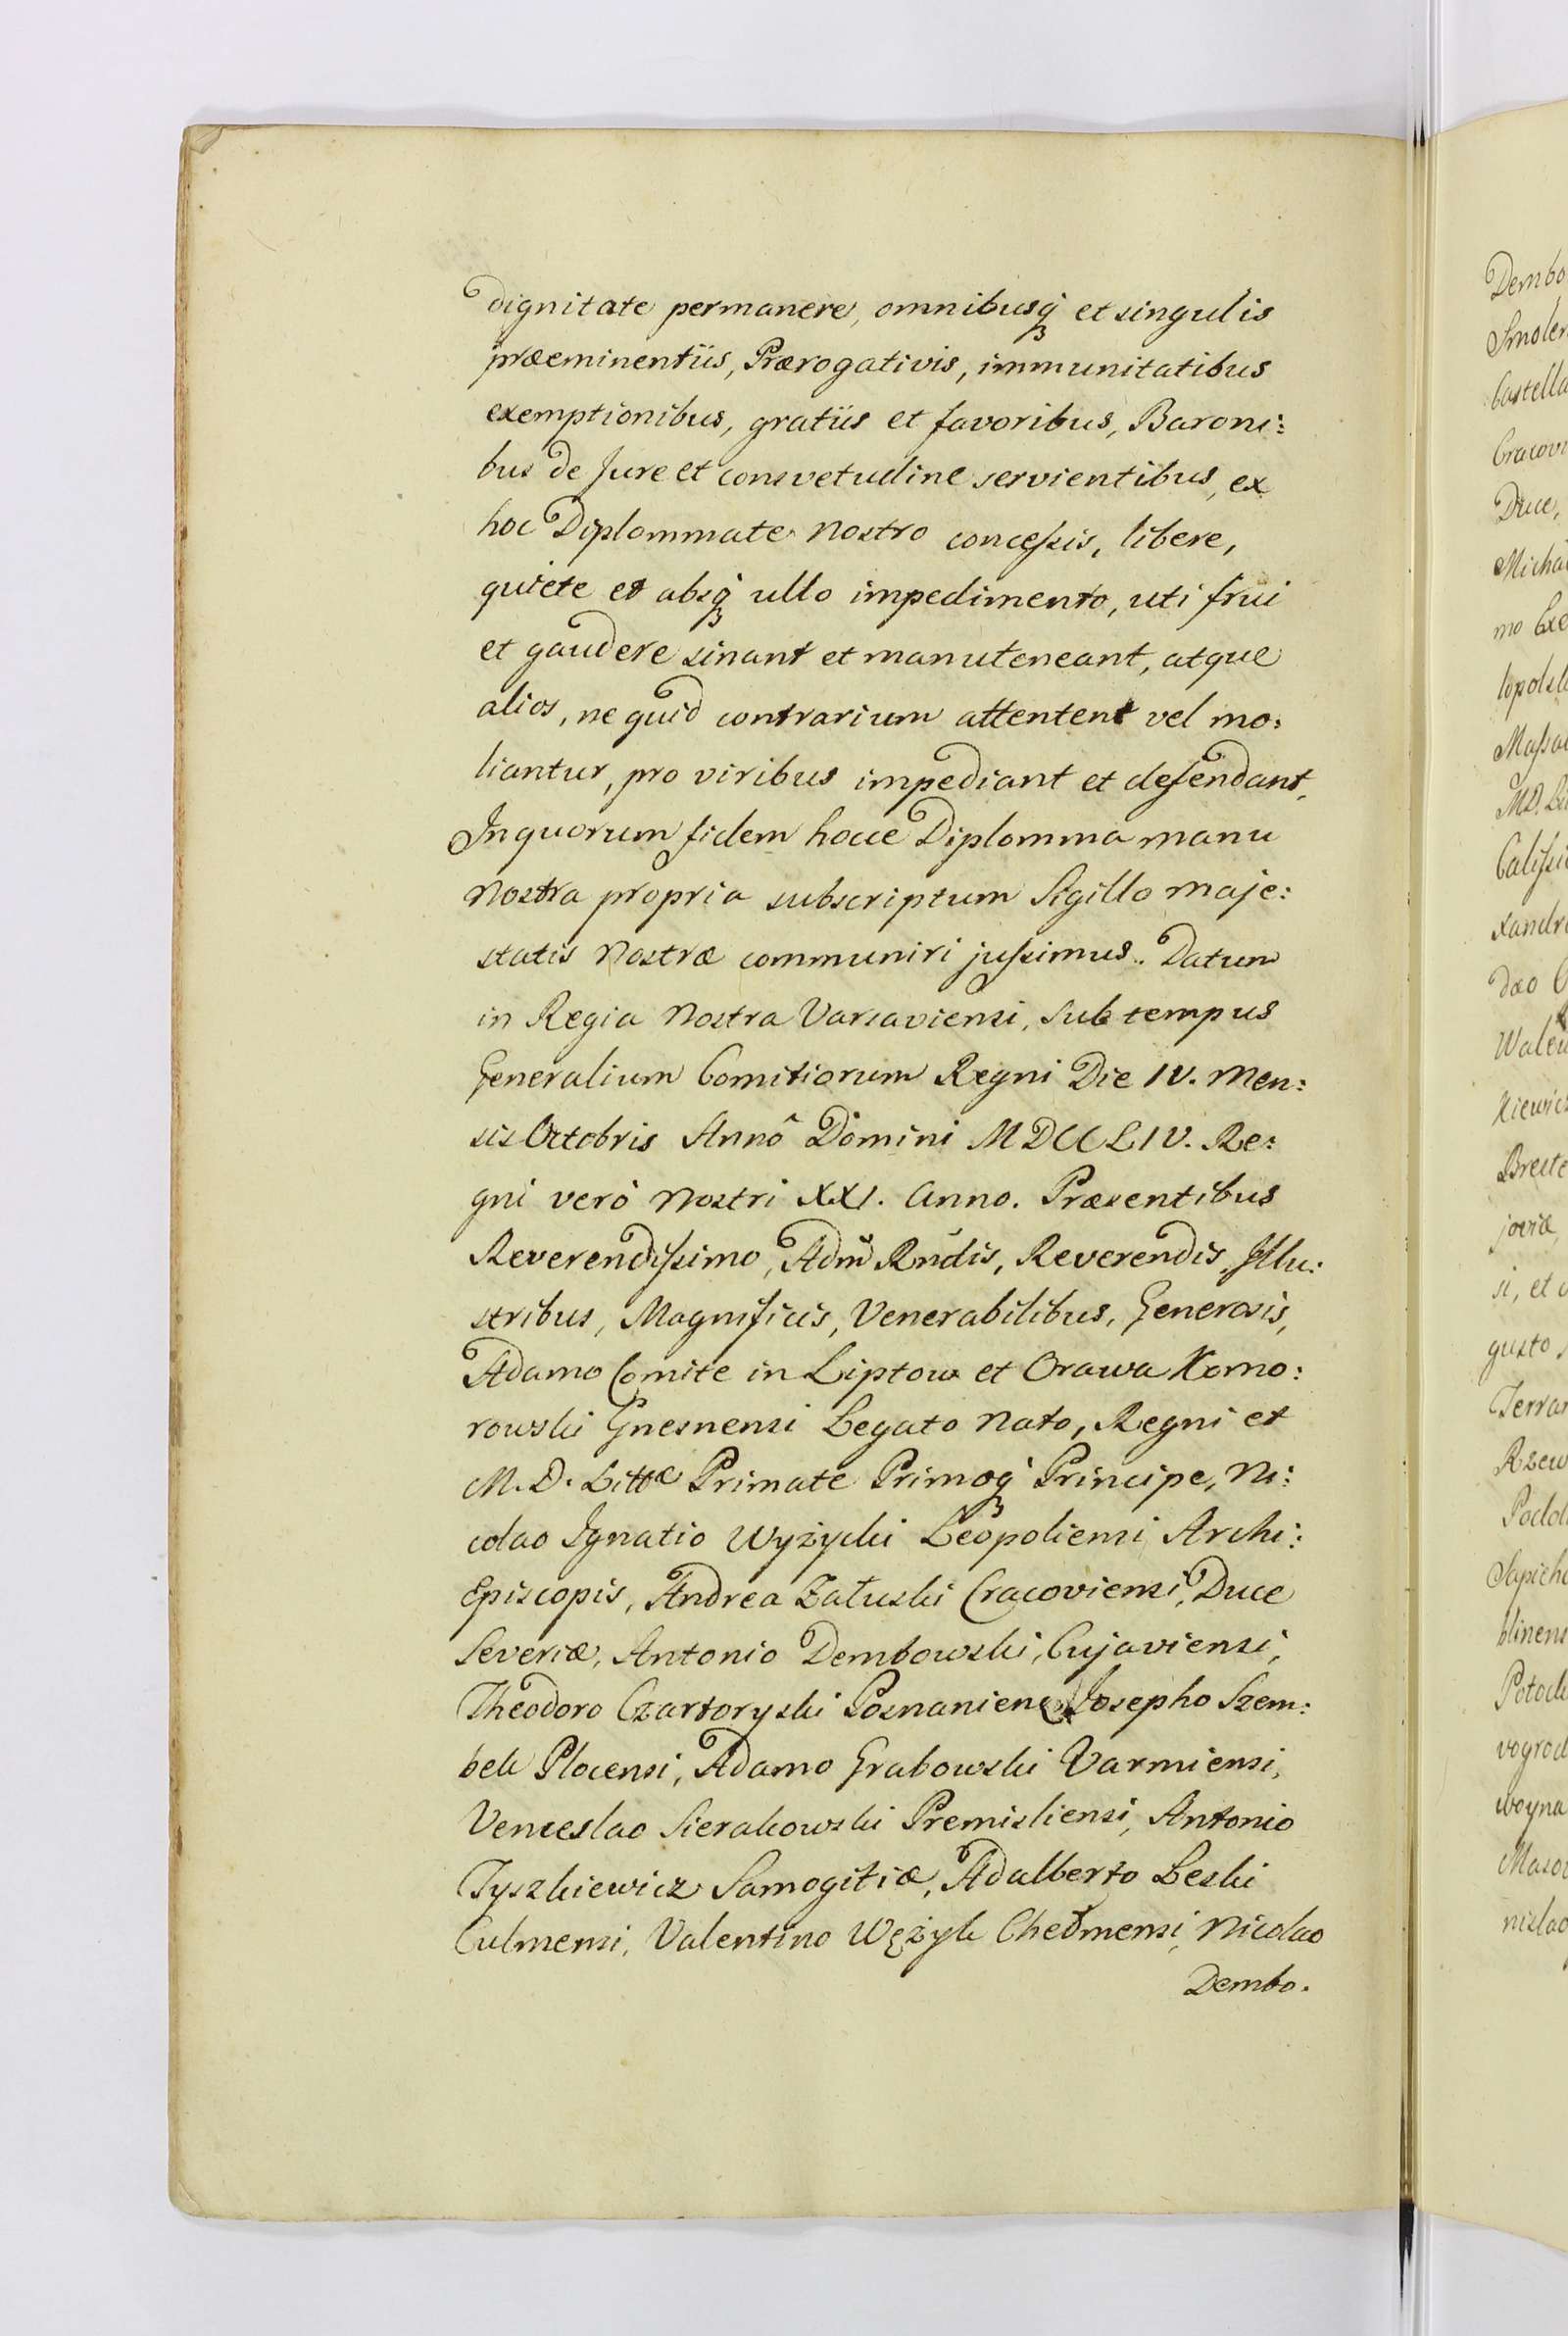 dignitate permanere, omnibusq́ꝫ et singulis
præeminentiis, Prærogativis, immunitatibus
exemptionibus, gratiis et favoribus, Baroni:
bus de Jure et consvetudine servientibus, ex
hoc Diplommate nostro conceſsis, libere,
quiete et absq́ꝫ ullo impedimento, uti frui
et gaudere sinant et manuteneant, atque
alios, ne quid contrarium attentent vel mo:
liantur, pro viribus impediant et defendant,
In quorum fidem hocce Diplomma manu
nostra propria subscriptum Sigillo Maje:
statis Nostræ communiri juſsimus. Datum
in Regia Nostra Varsaviensi, sub tempus
Generalium Comitiorum Regni Die IV. Men:
sis Octobris Annô Domini MDCCLIV. Re:
gni verò Nostri XXI. Anno. Præsentibus
Reverendiſsimo, Adm̃ Rñdis, Reverendis, Illu:
stribus, Magnificis, Venerabilibus, Generosis,
Adamo Comite in Liptow et Orawa Komo:
rowski Gnesnensi Legato Nato, Regni et
M. D. Littæ Primate Primoq́ꝫ Principe, Ni:
colao Ignatio Wyżycki Leopoliensi Archi:
Episcopis, Andrea Załuski Cracoviensi, Duce
Severiæ, Antonio Dembowski, Cujaviensi,
Theodoro Czartoryski Posnaniensi, Josepho Szem:
bek Plocensi, Adamo Grabowski Varmiensi,
Venceslao Sierakowski Premisliensi, Antonio
Tyszkiewicz Samogitiæ, Adalberto Leski
Culmensi, Valentino Wężyk Chełmensi, Nicolao
Dembo.
Dembo
Smolen
Castella
Cracovi
Duce,
Michae
mo Exc
lopolsk
Maſsal
MD. Li
Caliſsi
xandro
dæo
Walew
kiewicz
Breste
joviæ,
si, et
gusto
Terrar
Rzew
Podol
Sapieh
blinens
Potock
vogrod
woyna
Masov
nislao